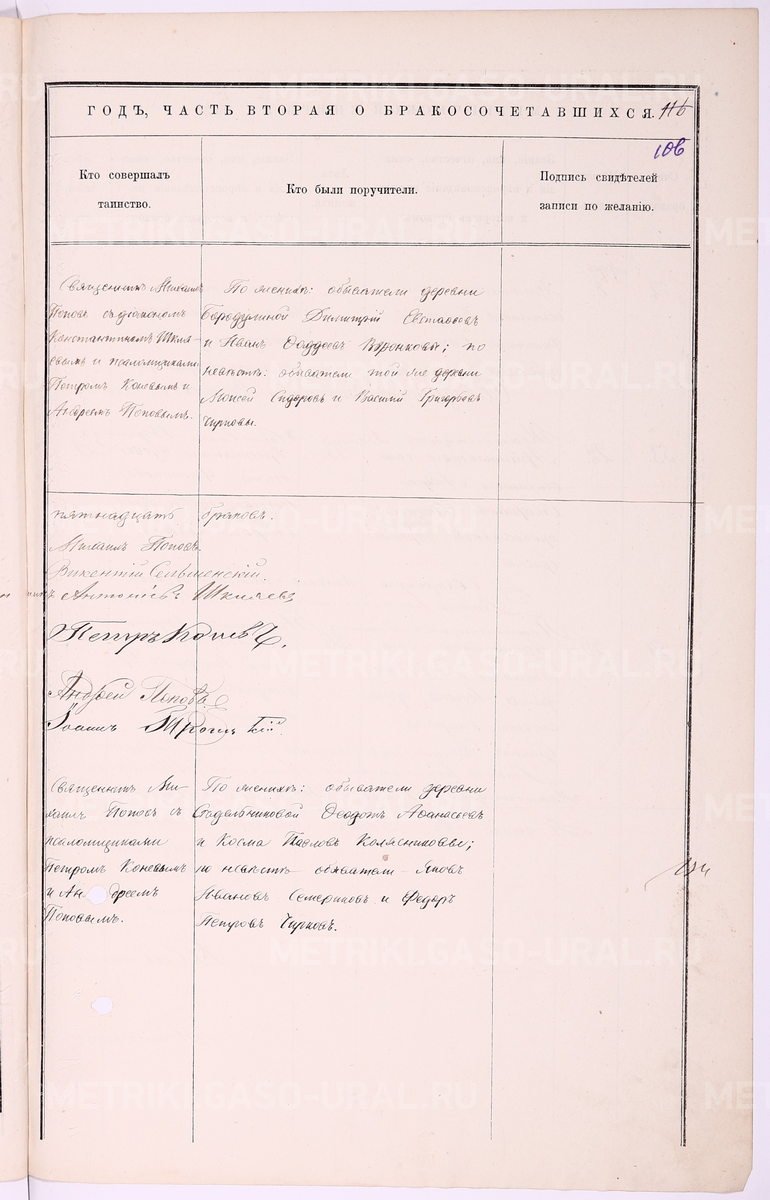 ГОДЪ, ЧАСТЬ ВТОРАЯ О БРАКОСОЧЕТАВШИХСЯ.
106
Кто совершалъ
таинство.
Кто были поручители.
Подпись свидѣтелей
записи по желанію.
Священникъ Михаилъ
Поповъ съ діакономъ
Константиномъ Шкля
евымъ и псаломщиками
Петромъ Коневымъ и
Андреемъ Поповымъ.
По женихѣ: обыватели деревни
Бородулиной Димитрій
и Иванъ Воронковы; по
невѣстѣ: обыватели той же деревни
Моисей Сидоровъ и Василій Григорьевъ
Чирковы.
пятнадцать браковъ.
Михаилъ Поповъ
Викентій
Антоній Шкляевъ
Петръ Коневъ
Андрей Поповъ
Іоаннъ
Священникъ Ми-
хаилъ Поповъ съ
псаломщиками
Петромъ Коневымъ
и Андреемъ
Поповымъ.
По женихѣ: обыватели деревни
Ѳеодотъ Аѳанасьевъ
и Косма Павловъ Колясниковы;
по невѣстѣ обыватели Яковъ
Ивановъ Семериковъ и Федоръ
Петровъ Чирковъ.
METRIKI.GASO-URAL.RU